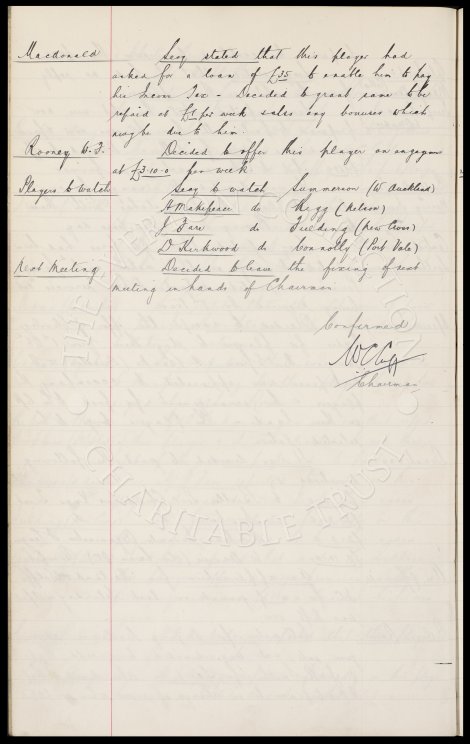 Macdonald Secy stated that this player had
asked for a loan of £35 to enable him to pay
his Income Tax - Decided to grant same to be
repaid at £1 per week & also any bonuses which
might be due to him.
Rooney W.F. Decided to offer this player an engagement
at £3-10-0 per week
Players to watch Secy to watch Summerson (W Auckland)
H Makepeace do Rigg (Nelson)
J Fare do Fielding (New Cross)
D Kirkwood do Connolly (Port Vale)
Next Meeting Decided to leave the fixing of next
meeting in hands of Chairman
Confirmed
W C Cuff
Chairman
THE
CHARITABLE TRUST